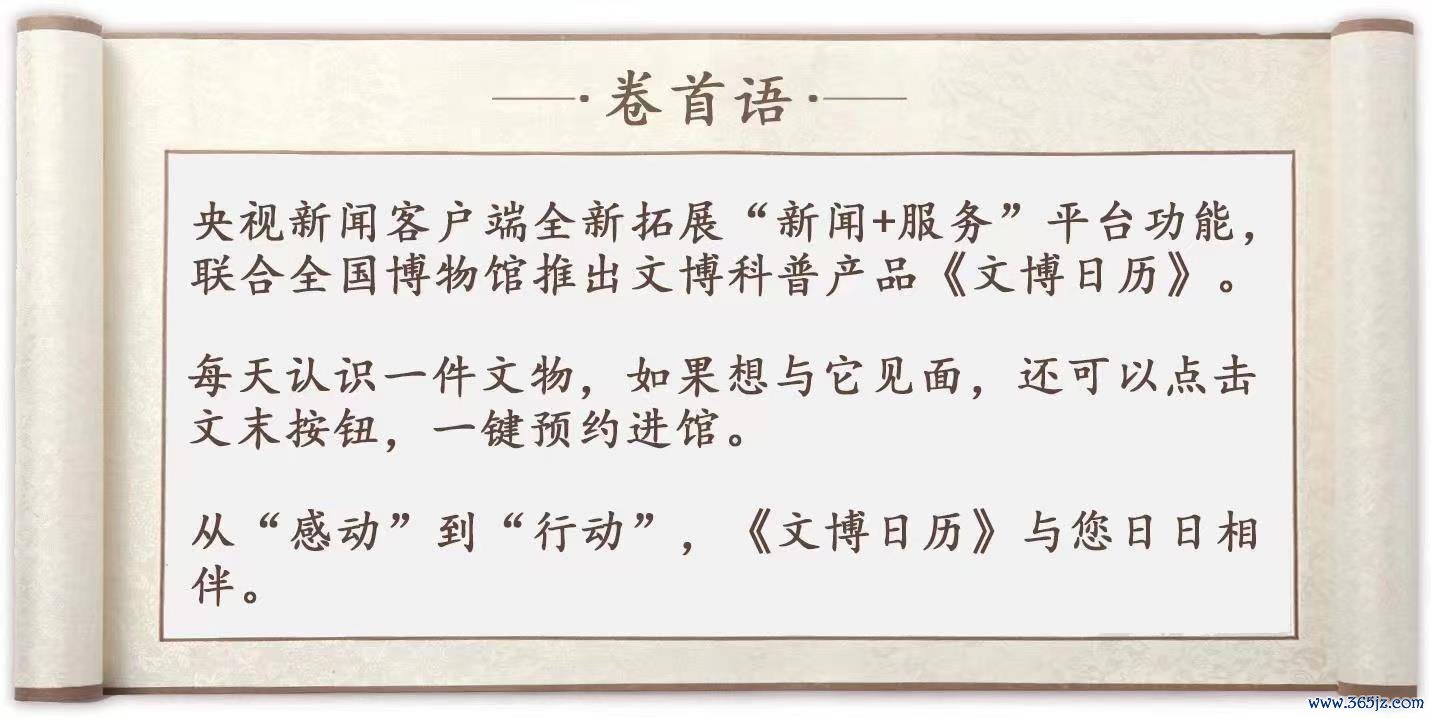 卷首语
央视新闻客户端全新拓展“新闻+服务”平台功能，
联合全国博物馆推出文博科普产品《文博日历》。
每天认识一件文物，如果想与它见面，还可以点击
文末按钮，一键预约进馆。
从“感动”到“行动”，《文博日历》与您日日相
伴。
www.365jz.com